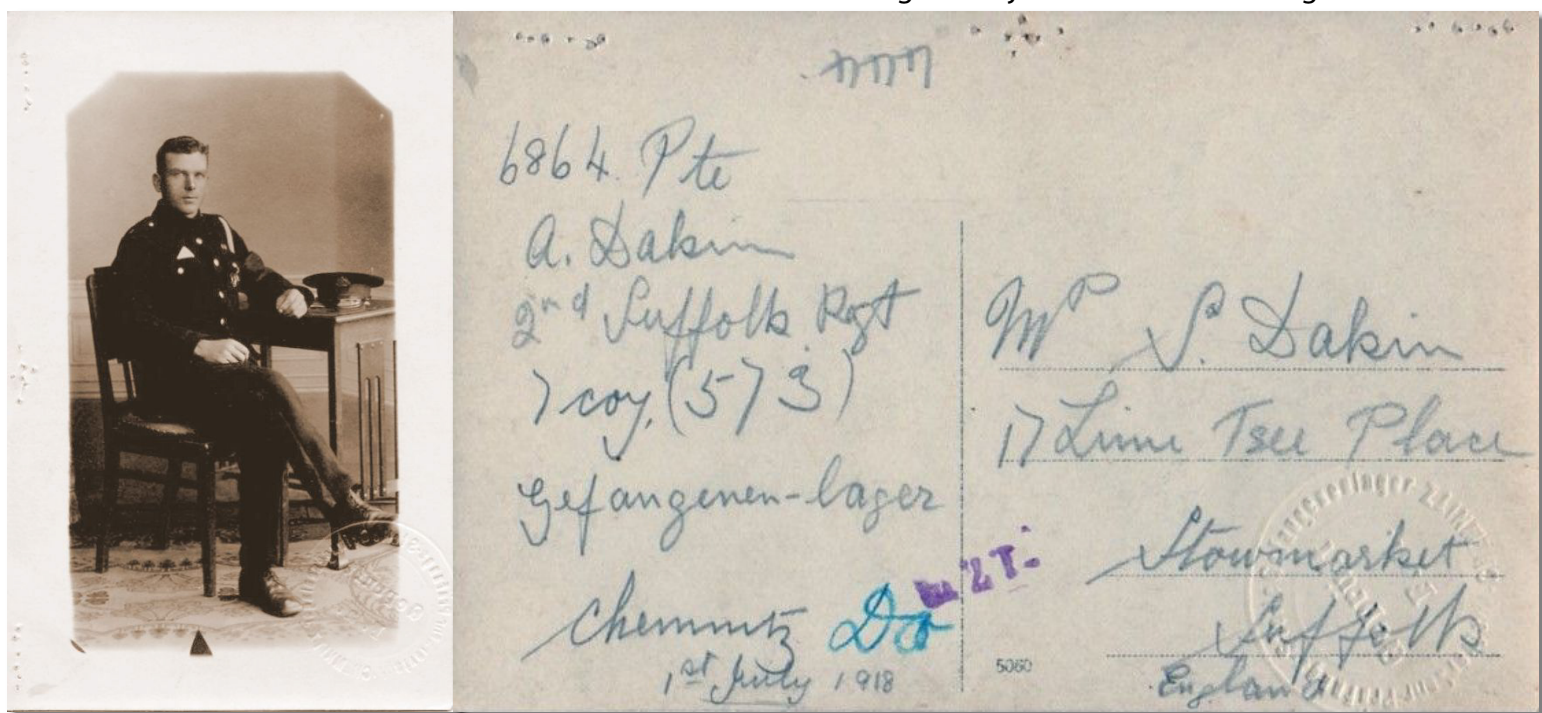 6864. Pte
A. Dakin
2nd Suffolk Rgt
7 coy. (573)
Gefangenen-lager
Chemnitz
1st July 1918
Mr S. Dakin
17 Lime Tree Place
Stowmarket
Suffolk
England
5060